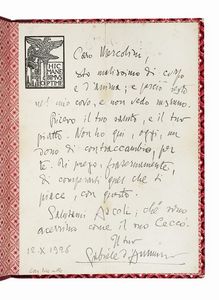 HIC
MANE
BIMUS
OPTIME
Caro Marcolini,
sto malissimo di corpo
e d'anima; e perciò resto
nel mio covo, e non vedo nessuno.
Ricevo il tuo saluto, e il tuo
piatto. Non ho qui, oggi, un
dono di contraccambio, per
te. Ti prego, fraternamente,
di comperarti quel che ti
piace, con questo.
Salutami Ascoli, che
come il mio Cecco.
Il tuo
Gabriele d'Annunzio
12.X.1926